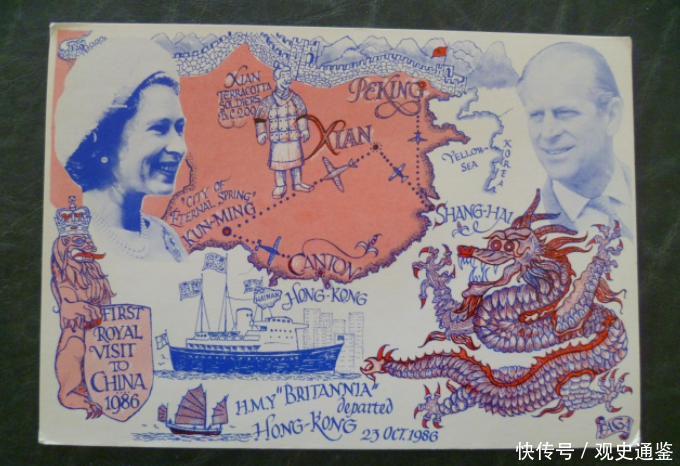 XIAN
TERRACOTTA
SOLDIERS
B.C. 200
PEKING
XIAN
YELLOW-
SEA
KOREA
"CITY OF
ETERNAL SPRING"
KUN-MING
SHANG-HAI
CANTON
HAINAN
HONG-KONG
FIRST
ROYAL
VISIT
TO
CHINA
1986
H.M.Y "BRITANNIA"
departed
HONG-KONG
23 OCT. 1986
快传号 / 观史通鉴